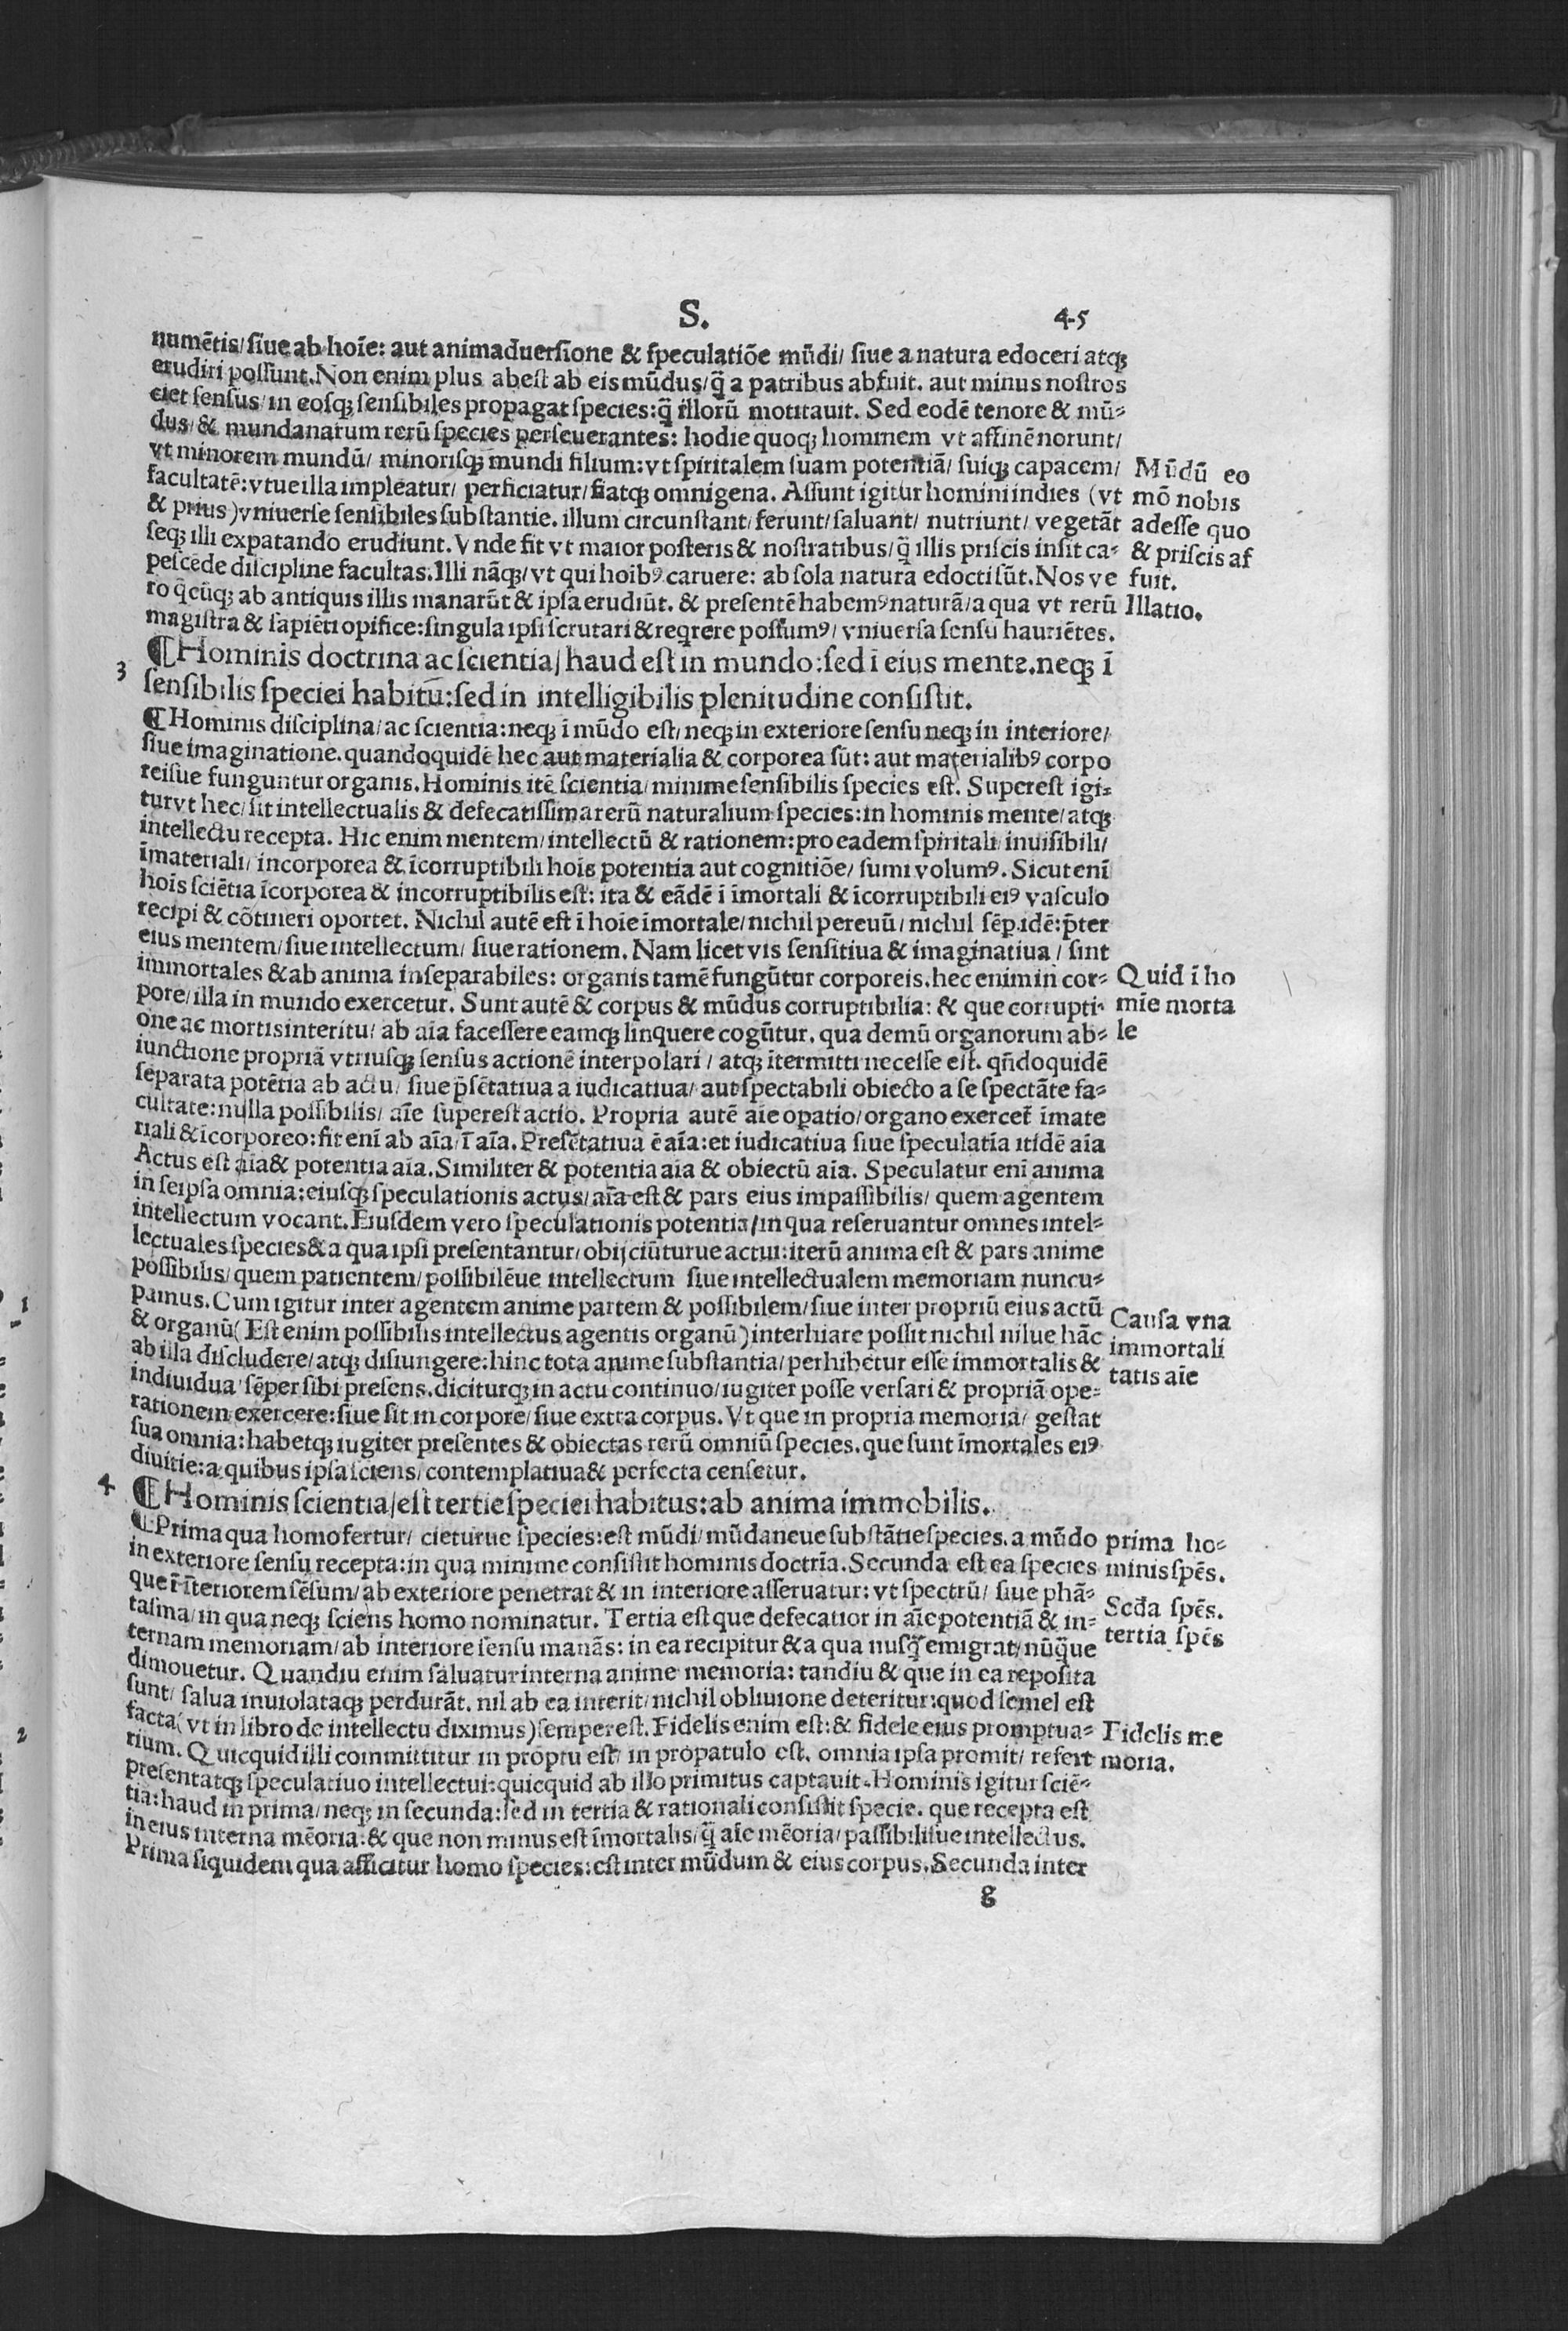 S. 45
numētis/ siue ab hoīe: aut animaduersione & speculatiōe mūdi/ siue a natura edoceri atq;
erudiri possunt. Non enim plus abest ab eis mūdus/ q̄ a patribus abfuit. aut minus nostros
ciet sensus/ in eosq; sensibiles propagat species: q̄ illorū motitauit. Sed eodē tenore & mū-
dus/ & mundanarum rerū species perseuerantes: hodie quoq; hominem vt affinē norunt/
vt minorem mundū/ minorisq; mundi filium: vt spiritalem suam potentiā/ suiq; capacem/
facultatē: vtue illa impleatur/ perficiatur/ fiatq; omnigena. Assunt igitur homini indies (vt
& prius) vniuerse sensibiles substantie. illum circunstant/ ferunt/ saluant/ nutriunt/ vegetāt
seq; illi expatando erudiunt. Vnde fit vt maior posteris & nostratibus/ q̄ illis priscis insit ca-
pescēde discipline facultas. Illi nāq;/ vt qui hoībꝰ caruere: ab sola natura edocti sūt. Nos ve
ro q̄cūq; ab antiquis illis manarūt & ipsa erudiūt. & presentē habemꝰ naturā/ a qua vt rerū
magistra & sapiēti opifice: singula ipsi scrutari & reqrere possumꝰ/ vniuersa sensu hauriētes.
Mūdū eo
mō nobis
adesse quo
& priscis af
fuit.
Illatio.
3
¶ Hominis doctrina ac scientia/ haud est in mundo: sed ī eius mente. neq; ī
sensibilis speciei habitū: sed in intelligibilis plenitudine consistit.
¶ Hominis disciplina/ ac scientia: neq; ī mūdo est/ neq; in exteriore sensu neq; in interiore/
siue imaginatione. quandoquidē hec aut materialia & corporea sūt: aut materialibꝰ corpo
reisue funguntur organis. Hominis itē scientia/ minime sensibilis species est. Superest igi-
tur vt hec/ sit intellectualis & defecatissima rerū naturalium species: in hominis mente/ atq;
intellectu recepta. Hic enim mentem/ intellectū & rationem: pro eadem spiritali/ inuisibili/
īmateriali/ incorporea & īcorruptibili hoīs potentia aut cognitiōe/ sumi volumꝰ. Sicut enī
hoīs sciētia īcorporea & incorruptibilis est: ita & eādē ī īmortali & īcorruptibili eiꝰ vasculo
recipi & cōtineri oportet. Nichil autē est ī hoīe īmortale/ nichil pereuū/ nichil sēp idē: p̄ter
eius mentem/ siue intellectum/ siue rationem. Nam licet vis sensitiua & imaginatiua/ sint
immortales & ab anima inseparabiles: organis tamē fungūtur corporeis. hec enim in cor-
pore/ illa in mundo exercetur. Sunt autē & corpus & mūdus corruptibilia: & que corrupti-
one ac mortis interitu/ ab aīa facessere eamq; linquere cogūtur. qua demū organorum ab-
iunctione propriā vtriusq; sensus actionē interpolari/ atq; ītermitti necesse est. qn̄doquidē
separata potētia ab actu/ siue p̄sētatiua a iudicatiua/ aut spectabili obiecto a se spectāte fa-
cultate: nulla possibilis/ aīe superest actio. Propria autē aīe opatio/ organo exercet̄ īmate
riali & īcorporeo: fit enī ab aīa/ ī aīa. Presētatiua ē aīa: et iudicatiua siue speculatīa itidē aīa
Actus est aīa & potentia aīa. Similiter & potentia aīa & obiectū aīa. Speculatur enī anima
in seipsa omnia: eiusq; speculationis actus/ aīa est & pars eius impassibilis/ quem agentem
intellectum vocant. Eiusdem vero speculationis potentia/ in qua reseruantur omnes intel-
lectuales species & a qua ipsi presentantur/ obijciūturue actui: iterū anima est & pars anime
possibilis/ quem patientem/ possibilēue intellectum siue intellectualem memoriam nuncu-
pamus. Cum igitur inter agentem anime partem & possibilem/ siue inter propriū eius actū
& organū (Est enim possibilis intellectus agentis organū) interhiare possit nichil nilue hāc
ab illa discludere/ atq; disiungere: hinc tota anime substantia/ perhibetur esse immortalis &
indiuidua/ sēper sibi presens. diciturq; in actu continuo/ iugiter posse versari & propriā ope-
rationem exercere: siue sit in corpore/ siue extra corpus. Vt que in propria memoria/ gestat
sua omnia: habetq; iugiter presentes & obiectas rerū omniū species. que sunt īmortales eiꝰ
diuitie: a quibus ipsa sciens/ contemplatiua & perfecta censetur.
Quid ī ho
mīe morta
le
Causa vna
immortali
tatis aīe
4
¶ Hominis scientia/ est tertie speciei habitus: ab anima immobilis.
¶ Prima qua homo fertur/ cieturue species: est mūdi/ mūdaneue substātie species. a mūdo
in exteriore sensu recepta: in qua minime consistit hominis doctrīa. Secunda est ea species
que ī īnteriorem sēsum/ ab exteriore penetrat & in interiore asseruatur: vt spectrū/ siue phā-
tasma/ in qua neq; sciens homo nominatur. Tertia est que defecatior in aīe potentiā & in-
ternam memoriam/ ab interiore sensu manās: in ea recipitur & a qua nusq̄ emigrat/ nūq̄ue
dimouetur. Quandiu enim saluatur interna anime memoria: tandiu & que in ea reposita
sunt/ salua inuiolataq; perdurāt. nil ab ea interit/ nichil obliuione deteritur: quod semel est
facta (vt in libro de intellectu diximus) semper est. Fidelis enim est: & fidele eius promptua-
rium. Quicquid illi committitur in proptu est/ in propatulo est. omnia ipsa promit/ refert
presentatq; speculatiuo intellectui: quicquid ab illo primitus captauit. Hominis igitur sciē-
tia: haud in prima/ neq; in secunda: sed in tertia & rationali consistit specie. que recepta est
in eius interna mēoria: & que non minus est īmortalis/ q̄ aīe mēoria/ passibilisue intellectus.
Prima siquidem qua afficitur homo species: est inter mūdum & eius corpus. Secunda inter
prima ho-
minis spēs.
Scd̄a spēs.
tertia spēs
Fidelis me
moria.
g